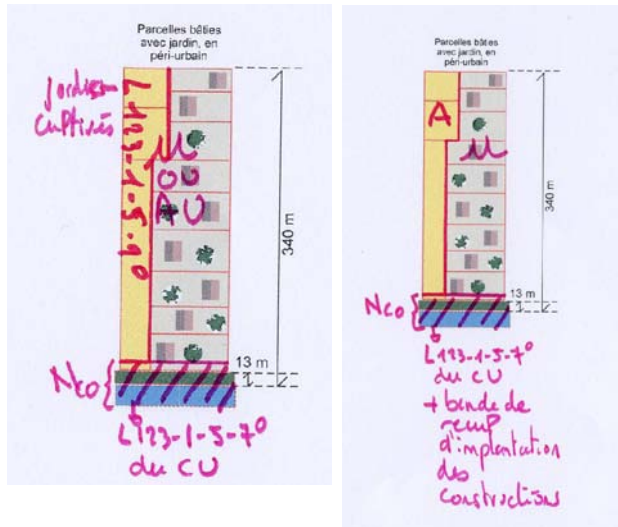 Parcelles bâties
avec jardin, en
péri-urbain
Jardins
cultivés
L 123-1-5-9°
U
OU
AU
340 m
13 m
Nco
L123-1-5-7°
du CU
Parcelles bâties
avec jardin, en
péri-urbain
A
U
340 m
13 m
Nco
L123-1-5-7°
du CU
+ bande de
d'implantation
des
constructions